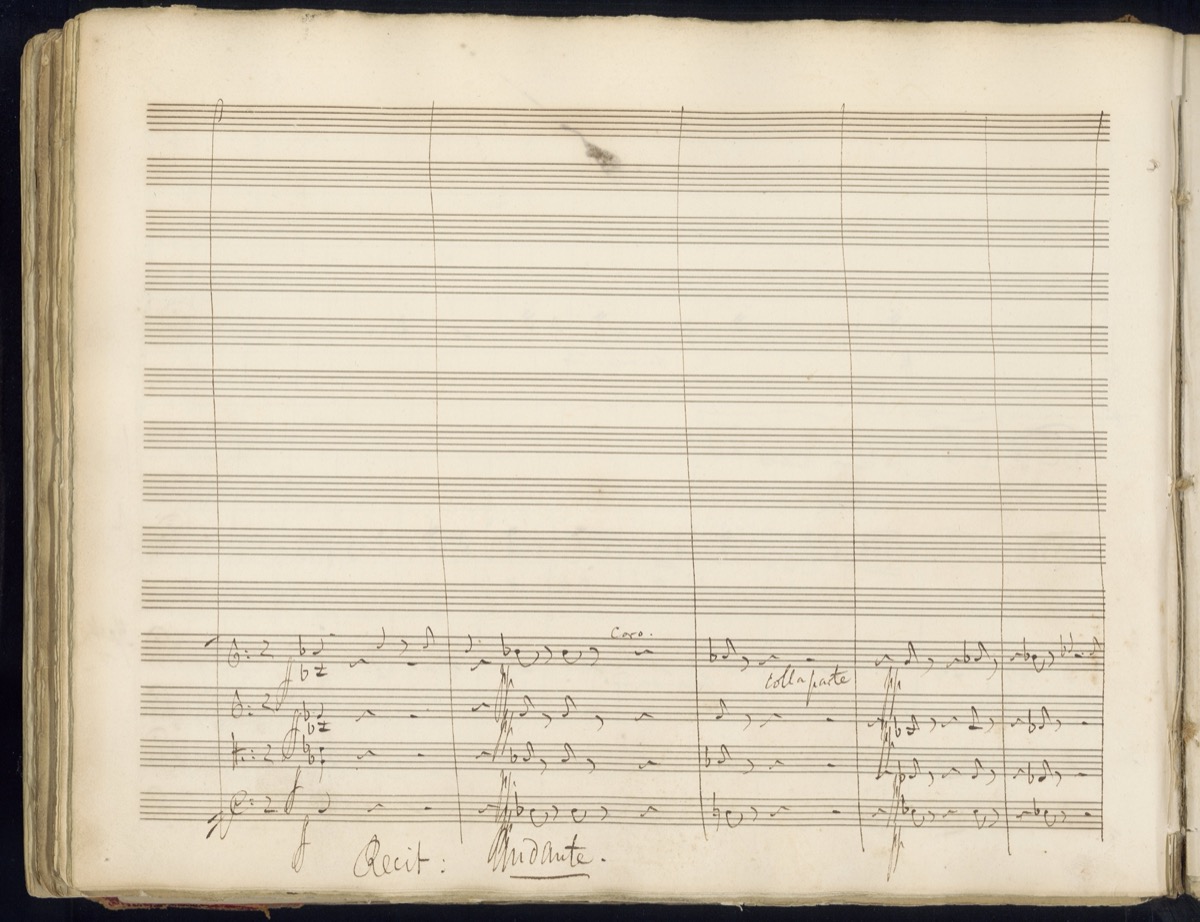 Coro.
colla parte
Recit: Andante.